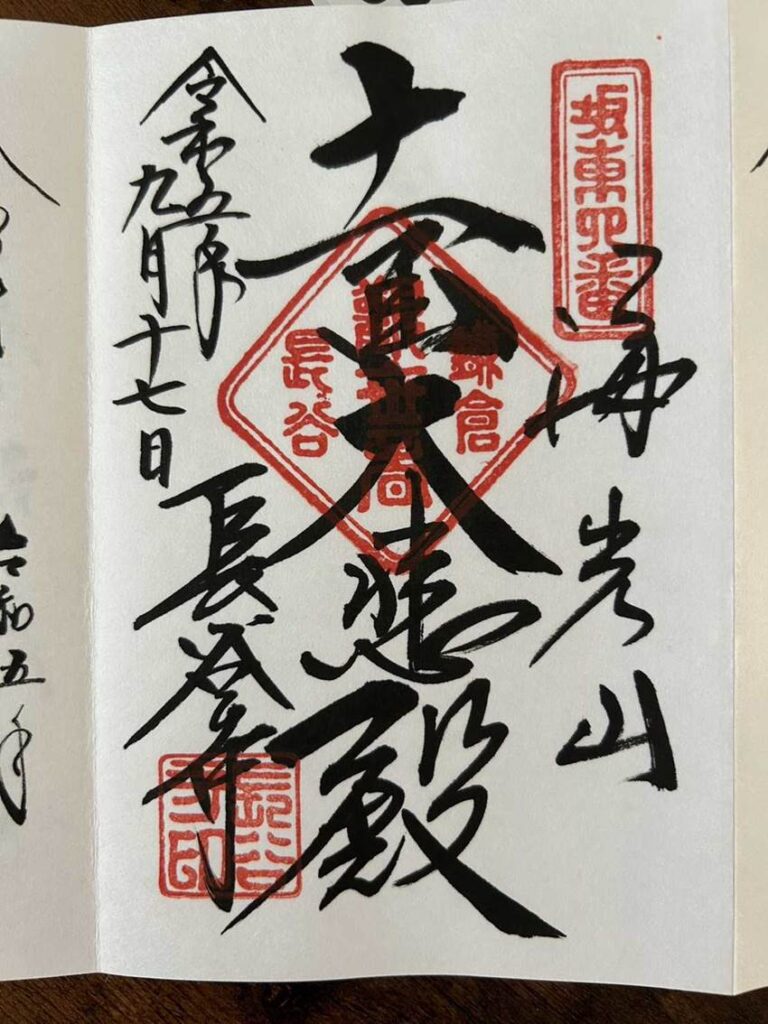 坂東四番
海光山
十一面大悲殿
鎌倉
長谷
令和五年
九月十七日
長谷寺
長谷
寺印
令和五年